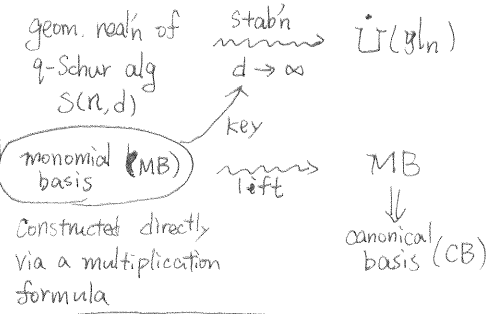 geom. real'n of
q-Schur alg
S(n,d)
stab'n
d → ∞
U̇(gln)
key
monomial (MB)
basis
lift
MB
⇓
canonical (CB)
basis
Constructed directly
via a multiplication
formula